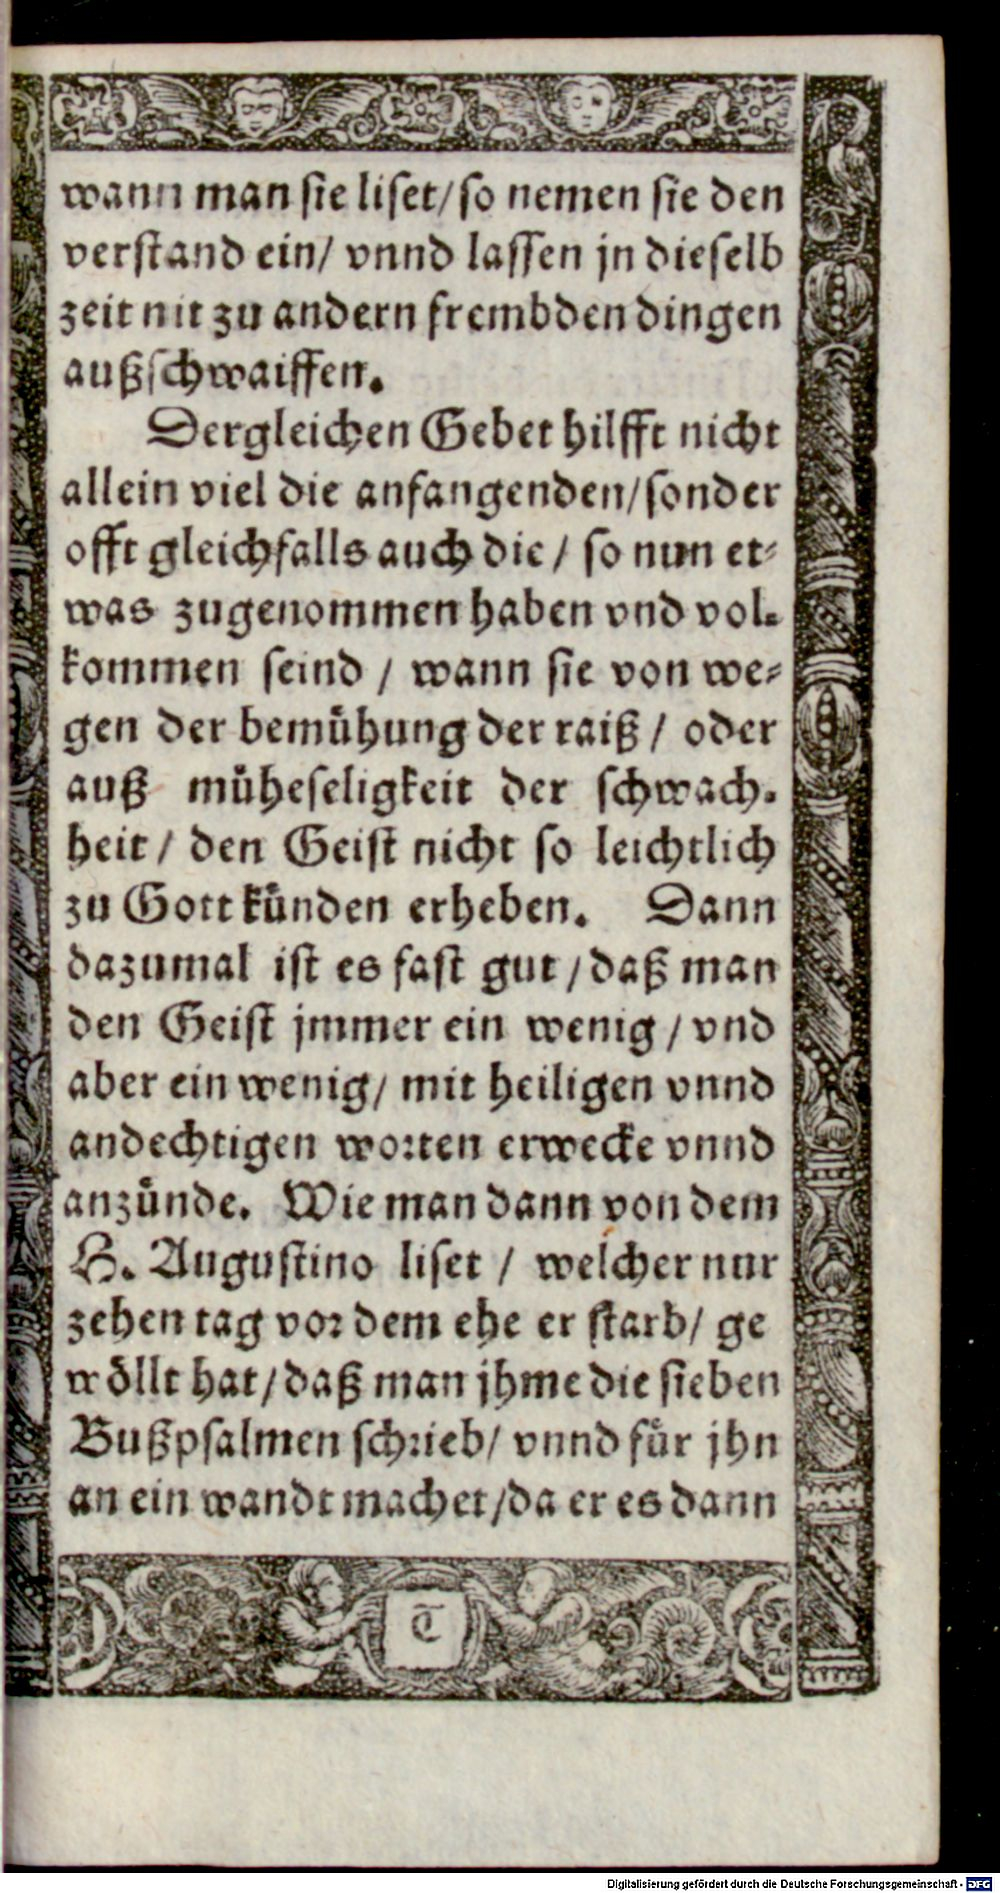 wann man sie liset/ so nemen sie den
verstand ein/ vnnd lassen jn dieselb
zeit nit zu andern frembden dingen
außschwaiffen.
Dergleichen Gebet hilfft nicht
allein viel die anfangenden/ sonder
offt gleichfalls auch die / so nun et-
was zugenommen haben vnd vol-
kommen seind / wann sie von we-
gen der bemühung der raiß / oder
auß müheseligkeit der schwach-
heit / den Geist nicht so leichtlich
zu Gott künden erheben. Dann
dazumal ist es fast gut / daß man
den Geist jmmer ein wenig / vnd
aber ein wenig/ mit heiligen vnnd
andechtigen worten erwecke vnnd
anzünde. Wie man dann von dem
H. Augustino liset / welcher nur
zehen tag vor dem ehe er starb/ ge
wöllt hat/ daß man jhme die sieben
Bußpsalmen schrieb/ vnnd für jhn
an ein wandt machet/ da er es dann
T
Digitalisierung gefördert durch die Deutsche Forschungsgemeinschaft - DFG